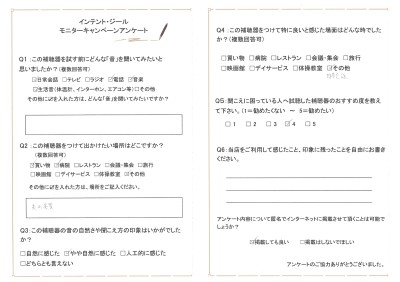 インテント・ジール
モニターキャンペーンアンケート
Q1：この補聴器を試す前にどんな「音」を聞いてみたいと
思いましたか？（複数回答可）
□日常会話 □テレビ □ラジオ ☑電話 ☑音楽
□生活音（体温計、インターホン、エアコン等）□その他
その他に☑を入れた方は、どんな「音」を聞いてみたいですか？
Q2：この補聴器をつけて出かけたい場所はどこですか？
（複数回答可）
☑買い物 ☑病院 □レストラン □会議・集会 □旅行
□映画館 □デイサービス □体操教室 ☑その他
その他に☑を入れた方は、場所をご記入ください。
Q3：この補聴器の音の自然さや聞こえ方の印象はいかがでした
か？
□自然に感じた ☑やや自然に感じた □人工的に感じた
□どちらとも言えない
Q4：この補聴器をつけて特に良いと感じた場面はどんな時でした
か？（複数回答可）
□買い物 □病院 □レストラン □会議・集会 □旅行
□映画館 □デイサービス □体操教室 ☑その他
Q5：聞こえに困っている人へ試聴した補聴器のおすすめ度を教え
て下さい。（1＝勧めたくない ～ 5＝勧めたい）
□1 □2 □3 ☑4 □5
Q6：当店をご利用して感じたこと、印象に残ったことを自由にお書き
ください。
アンケート内容について匿名でインターネットに掲載させて頂くことは可能で
しょうか？
☑掲載しても良い □掲載はしないでほしい
アンケートのご協力ありがとうございました。